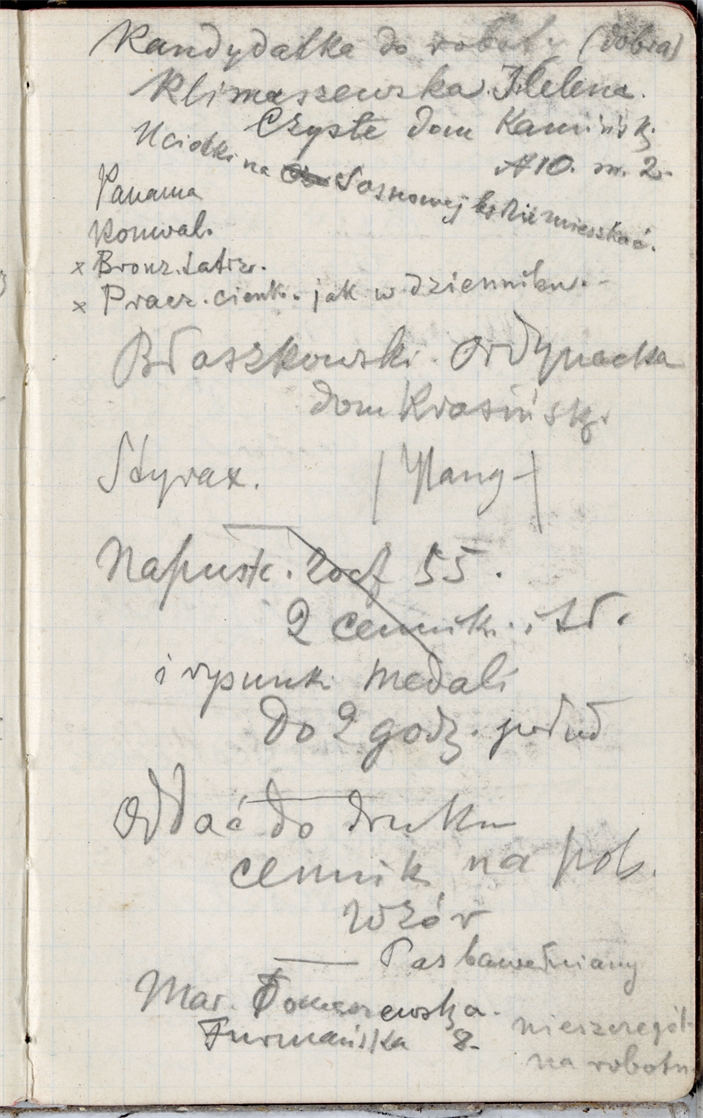 Kandydatka do roboty (dobra)
Klimaszewska Helena.
Czyste dom Kamińsk.
№10. m. 2.
U ciotki na Sosnowej
mieszkać.
Panama
Konwal.
x Bronz.
x Pracz. cienk. jak w dzienniku.-
Błaszkowski. Ordynacka
dom Krasińsk.
Styrax. | Ylang-|
Napustk. Zoof 55.
2 cennik. i
i rysunk medali
do 2 godz. połud
Oddać do druku
cennik na pob.
wzór
— Pas bawełniany
Mar. Tomaszewska.
Furmańska 8.
nieszczegól.
na robotn